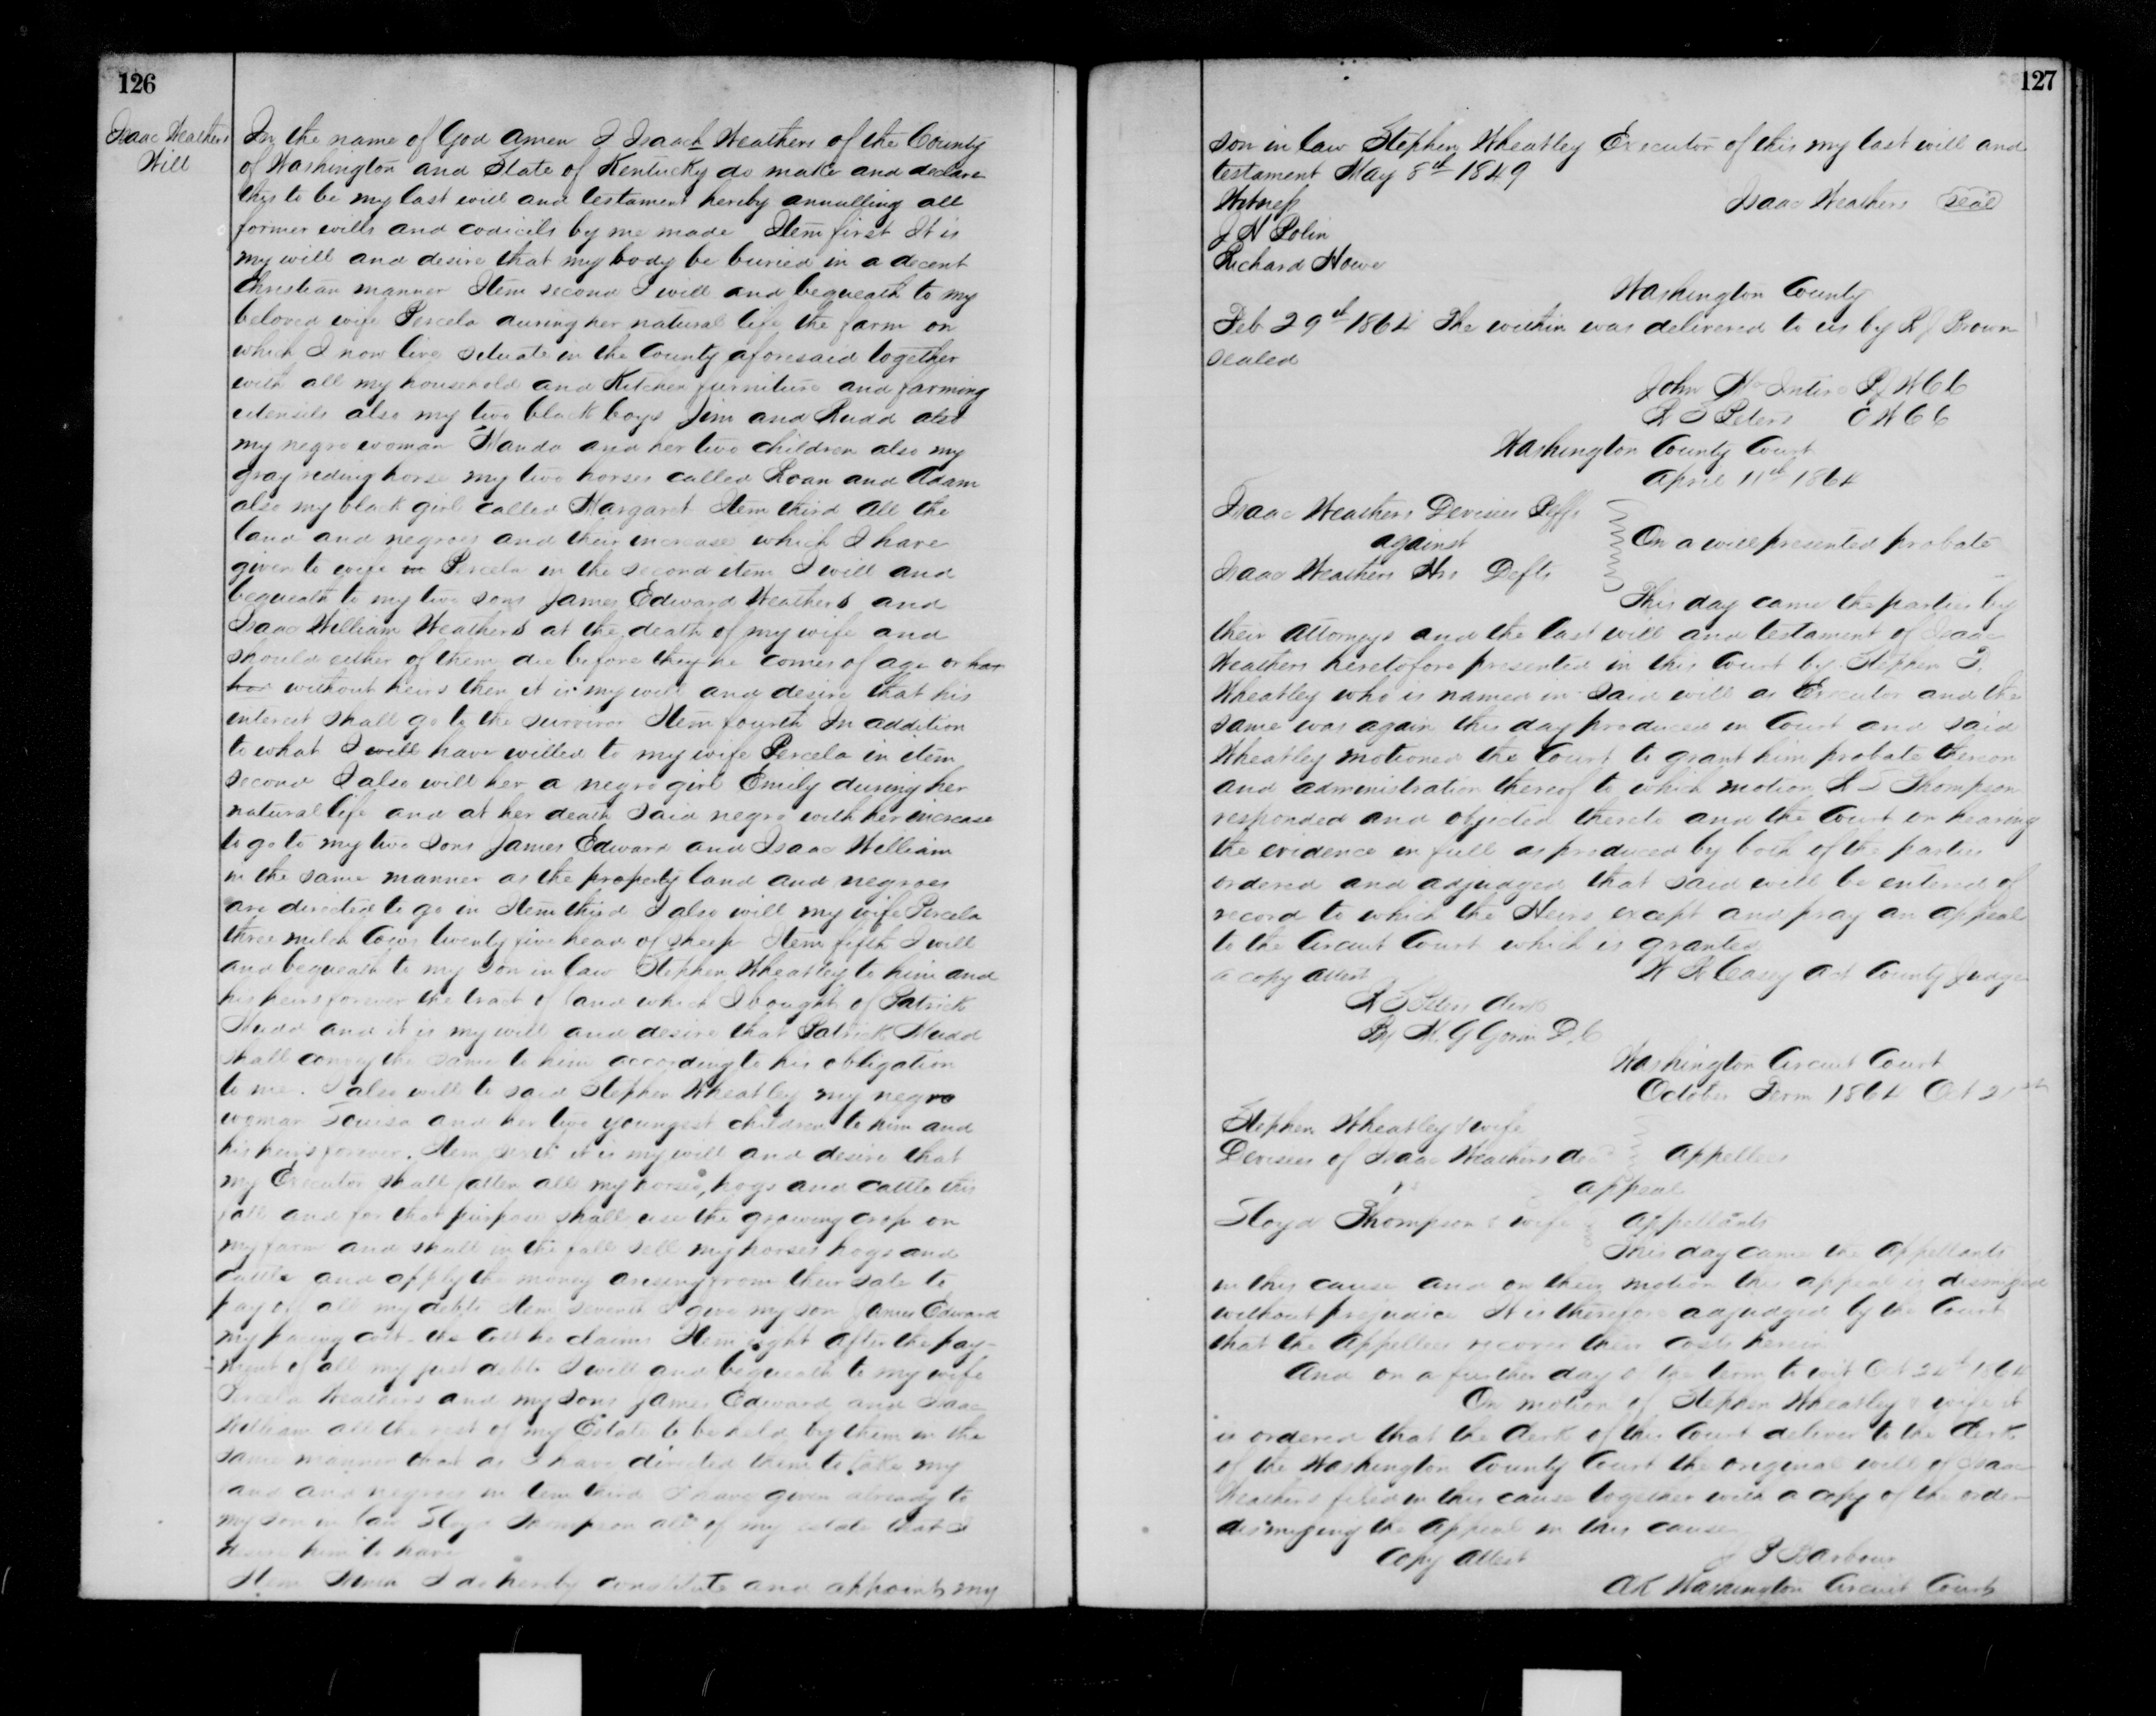 126
Isaac Weathers
Will
In the name of God Amen I Isaack Weathers of the County
of Washington and State of Kentucky do make and declare
this to be my last will and testament hereby annulling all
former wills and codicils by me made Item first It is
my will and desire that my body be buried in a decent
Christian manner Item second I will and bequeath to my
beloved wife Percela during her natural life the farm on
which I now live situate in the County aforesaid together
with all my household and Kitchen furniture and farming
utensils also my two black boys Jim and Rudd also
my negro woman Manda and her two children also my
gray riding horse my two horses called Roan and Adam
also my black girl called Margaret Item third all the
land and negroes and their increase which I have
given to wife in Percela in the second item I will and
bequeath to my two sons James Edward Weathers and
Isaac William Weathers at the death of my wife and
should either of them die before they he comes of age or has
has without heirs then it is my will and desire that his
interest shall go to the survivor Item fourth In addition
to what I will have willed to my wife Percela in item
second I also will her a negro girl Emily during her
natural life and at her death said negro with her increase
to go to my two sons James Edward and Isaac William
in the same manner as the property land and negroes
are directed to go in Item third I also will my wife Percela
three milch Cows twenty five head of sheep Item fifth I will
and bequeath to my son in law Stephen Wheatley to him and
his heirs forever the tract of land which I bought of Patrick
Mudd and it is my will and desire that Patrick Mudd
shall convey the same to him according to his obligation
to me. I also will to said Stephen Wheatley my negro
woman Louisa and her two youngest children to him and
his heirs forever. Item sixth it is my will and desire that
my Executor shall fatten all my horses, hogs and cattle this
fall and for that purpose shall use the growing crop on
my farm and shall in the fall sell my horses hogs and
cattle and apply the money arising from their sale to
pay off all my debts Item seventh I give my son James Edward
my pacing colt the colt he claims Item eight after the pay-
-ment of all my just debts I will and bequeath to my wife
Percela Weathers and my sons James Edward and Isaac
William all the rest of my Estate to be held by them in the
same manner that as I have directed them to take my
land and negroes in item third I have given already to
my son in law Floyd Thompson all of my estate that I
desire him to have
Item I do hereby constitute and appoint my
127
son in law Stephen Wheatley Executor of this my last will and
testament May 8th 1849
Witness
Isaac Weathers Seal
J H Polin
Richard Howe
Washington County
Feb 29th 1864 The within was delivered to us by R J Brown
sealed
John McIntire P J W C C
R S Peters C W C C
Washington County Court
April 11th 1864
Isaac Weathers Devisees Plffs
against
On a will presented probate
Isaac Weathers Hrs Defts
This day came the parties by
their attorneys and the last will and testament of Isaac
Weathers heretofore presented in this Court by Stephen T.
Wheatley who is named in said will as Executor and the
same was again this day produced in Court and said
Wheatley motioned the Court to grant him probate thereon
and administration thereof to which motion Thompson
responded and objected thereto and the Court on hearing
the evidence in full as produced by both of the parties
ordered and adjudged that said will be entered of
record to which the Heirs except and pray an appeal
to the Circuit Court which is granted
a copy attest
W R Casey Act County Judge
R S Peters Clerk
By K. G Gorin D. C
Washington Circuit Court
October Term 1864 Oct 21st
Stephen Wheatley & wife
Devisees of Isaac Weathers decd appellees
vs appeal
Floyd Thompson & wife appellants
This day came the appellants
in this cause and on their motion this appeal is dismissed
without prejudice It is therefore adjudged by the Court
that the appellees recover their costs herein
And on a further day of the term to wit Oct 24th 1864
On motion of Stephen Wheatley & wife it
is ordered that the Clerk of this Court deliver to the Clerk
of the Washington County Court the original will of Isaac
Weathers filed in this cause together with a copy of the order
dismissing the appeal in this cause
Copy attest
J P Barbour
Clk Washington Circuit Court